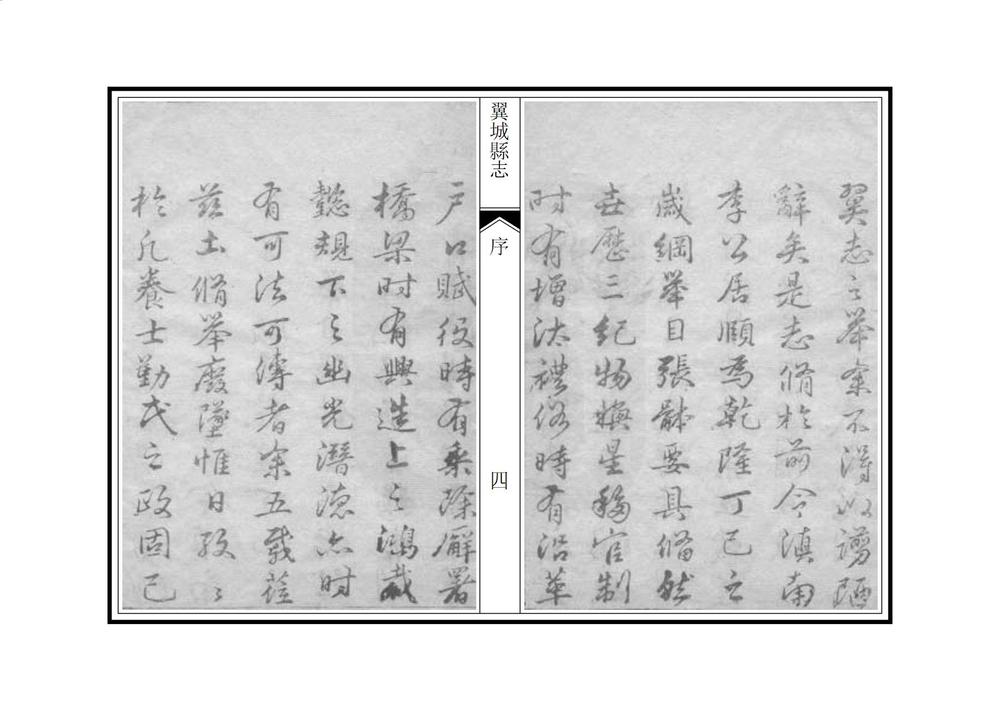 翼志之舉余不得以謭陋
辭矣是志脩於前令滇南
李公居順爲乾隆丁巳之
歲綱舉目張骵要具備然
世歷三紀物換星移官制
时有增汰禮俗時有沿革
翼城縣志
序
四
户口賦役時有乘除廨署
橋梁时有興造上之鴻裁
懿規下之幽光潛德亦时
有可法可傳者余五載莅
兹土脩舉廢墜惟日孜〻
於凡養士勤民之政固已